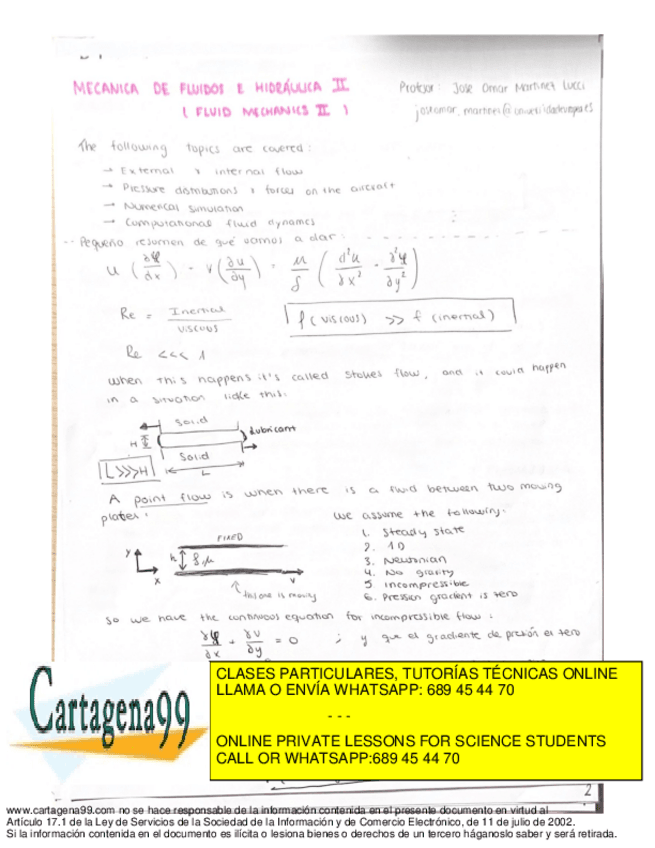 MECANICA DE FLUIDOS E HIDRÁULICA II
( FLUID MECHANICS II )
Profesor: Jose Omar Martinez Lucci
The following topics are covered:
→ External & internal flow
→ Pressure distributions & forces on the aircraft
→ Numerical simulation
→ Computational fluid dynamics
Pequeño resumen de qué vamos a dar:
u (∂φ/∂x) - v (∂u/∂y) = μ/ρ (∂²u/∂x² - ∂²φ/∂y²)
Re = Inertial / viscous
f (viscous) >> f (inertial)
Re <<< 1
when this happens it's called Stokes flow, and it could happen
in a situation like this:
Solid
Lubricant
H
Solid
L>>>H
L
A point flow is when there is a fluid between two moving
plates.
we assume the following:
1. Steady state
2. 1D
3. Newtonian
4. No gravity
5 incompressible
6. Pression gradient is zero
FIXED
y
h
ρ, μ
x
V
this one is moving
So we have the continuous equation for incompressible flow:
∂φ/∂x + ∂v/∂y = 0 ; y que el gradiente de presión es zero
Cartagena99
CLASES PARTICULARES, TUTORÍAS TÉCNICAS ONLINE
LLAMA O ENVÍA WHATSAPP: 689 45 44 70
- - -
ONLINE PRIVATE LESSONS FOR SCIENCE STUDENTS
CALL OR WHATSAPP:689 45 44 70
2
www.cartagena99.com no se hace responsable de la información contenida en el presente documento en virtud al
Artículo 17.1 de la Ley de Servicios de la Sociedad de la Información y de Comercio Electrónico, de 11 de julio de 2002.
Si la información contenida en el documento es ilícita o lesiona bienes o derechos de un tercero háganoslo saber y será retirada.